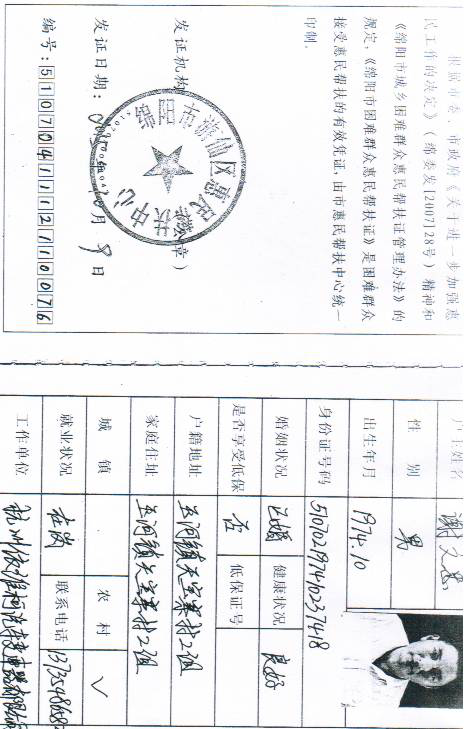 根据市委、市政府《关于进一步加强惠
民工作的决定》(绵委发[2007]28号)精神和
《绵阳市城乡困难群众惠民帮扶证管理办法》的
规定,《绵阳市困难群众惠民帮扶证》是困难群众
接受惠民帮扶的有效凭证,由市惠民帮扶中心统一
印制。
发证机构 章)
绵阳市游仙区惠民帮扶中心
发证日期: 月 日
编号:5107041112110076
户主姓名 谢文
性别 男
出生年月 1974.10
身份证号码 510702197410237418
婚姻状况 已婚 健康状况 良好
是否享受低保 否 低保证号
户籍地址 玉河镇天宝寨村2组
家庭住址 玉河镇天宝寨村2组
城镇 农村 √
就业状况 在岗 联系电话
工作单位 杭州